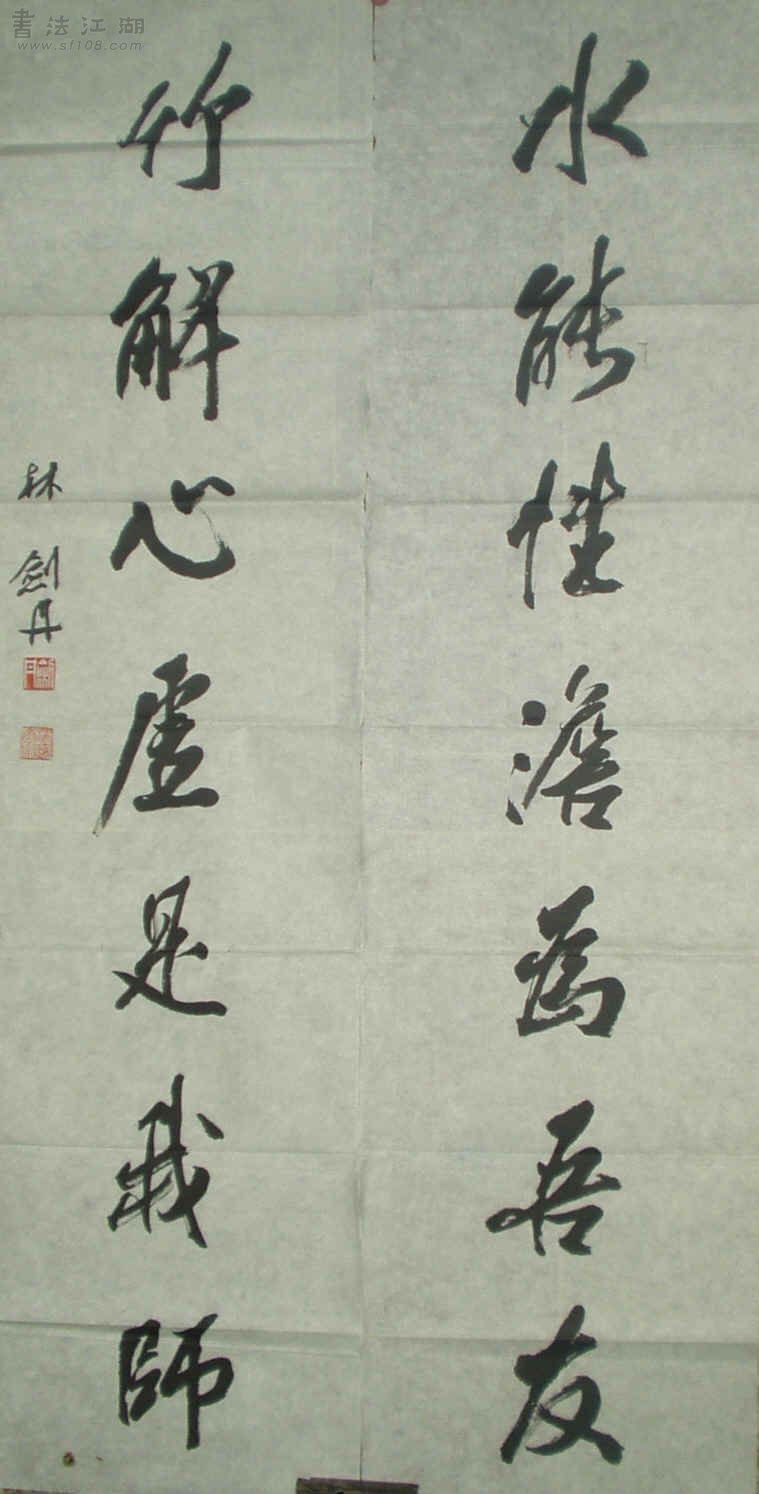 水能性澹為吾友
竹解心虛是我師
林劍丹
書法江湖
www.sf108.com